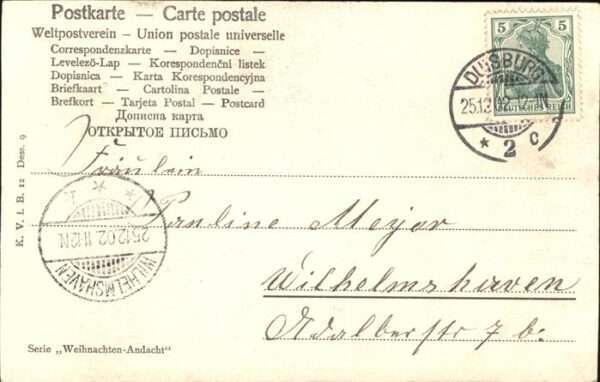 Postkarte — Carte postale
Weltpostverein — Union postale universelle
Correspondenzkarte — Dopisnice —
Levelező-Lap — Korespondenční listek
Dopisnica — Karta Korespondencyjna
Briefkaart — Cartolina Postale —
Brefkort — Tarjeta Postal — Postcard
Дописна карта
ОТКРЫТОЕ ПИСЬМО
5 5
DEUTSCHES REICH
DUISBURG
25.12.02
* 2 c
Fräulein
Pauline Meyer
Wilhelmshaven
Adalberstr 7 b.
WILHELMSHAVEN
25.12.02 11-12N
K. V. i. B. 12 Dess. 9
Serie „Weihnachten-Andacht"